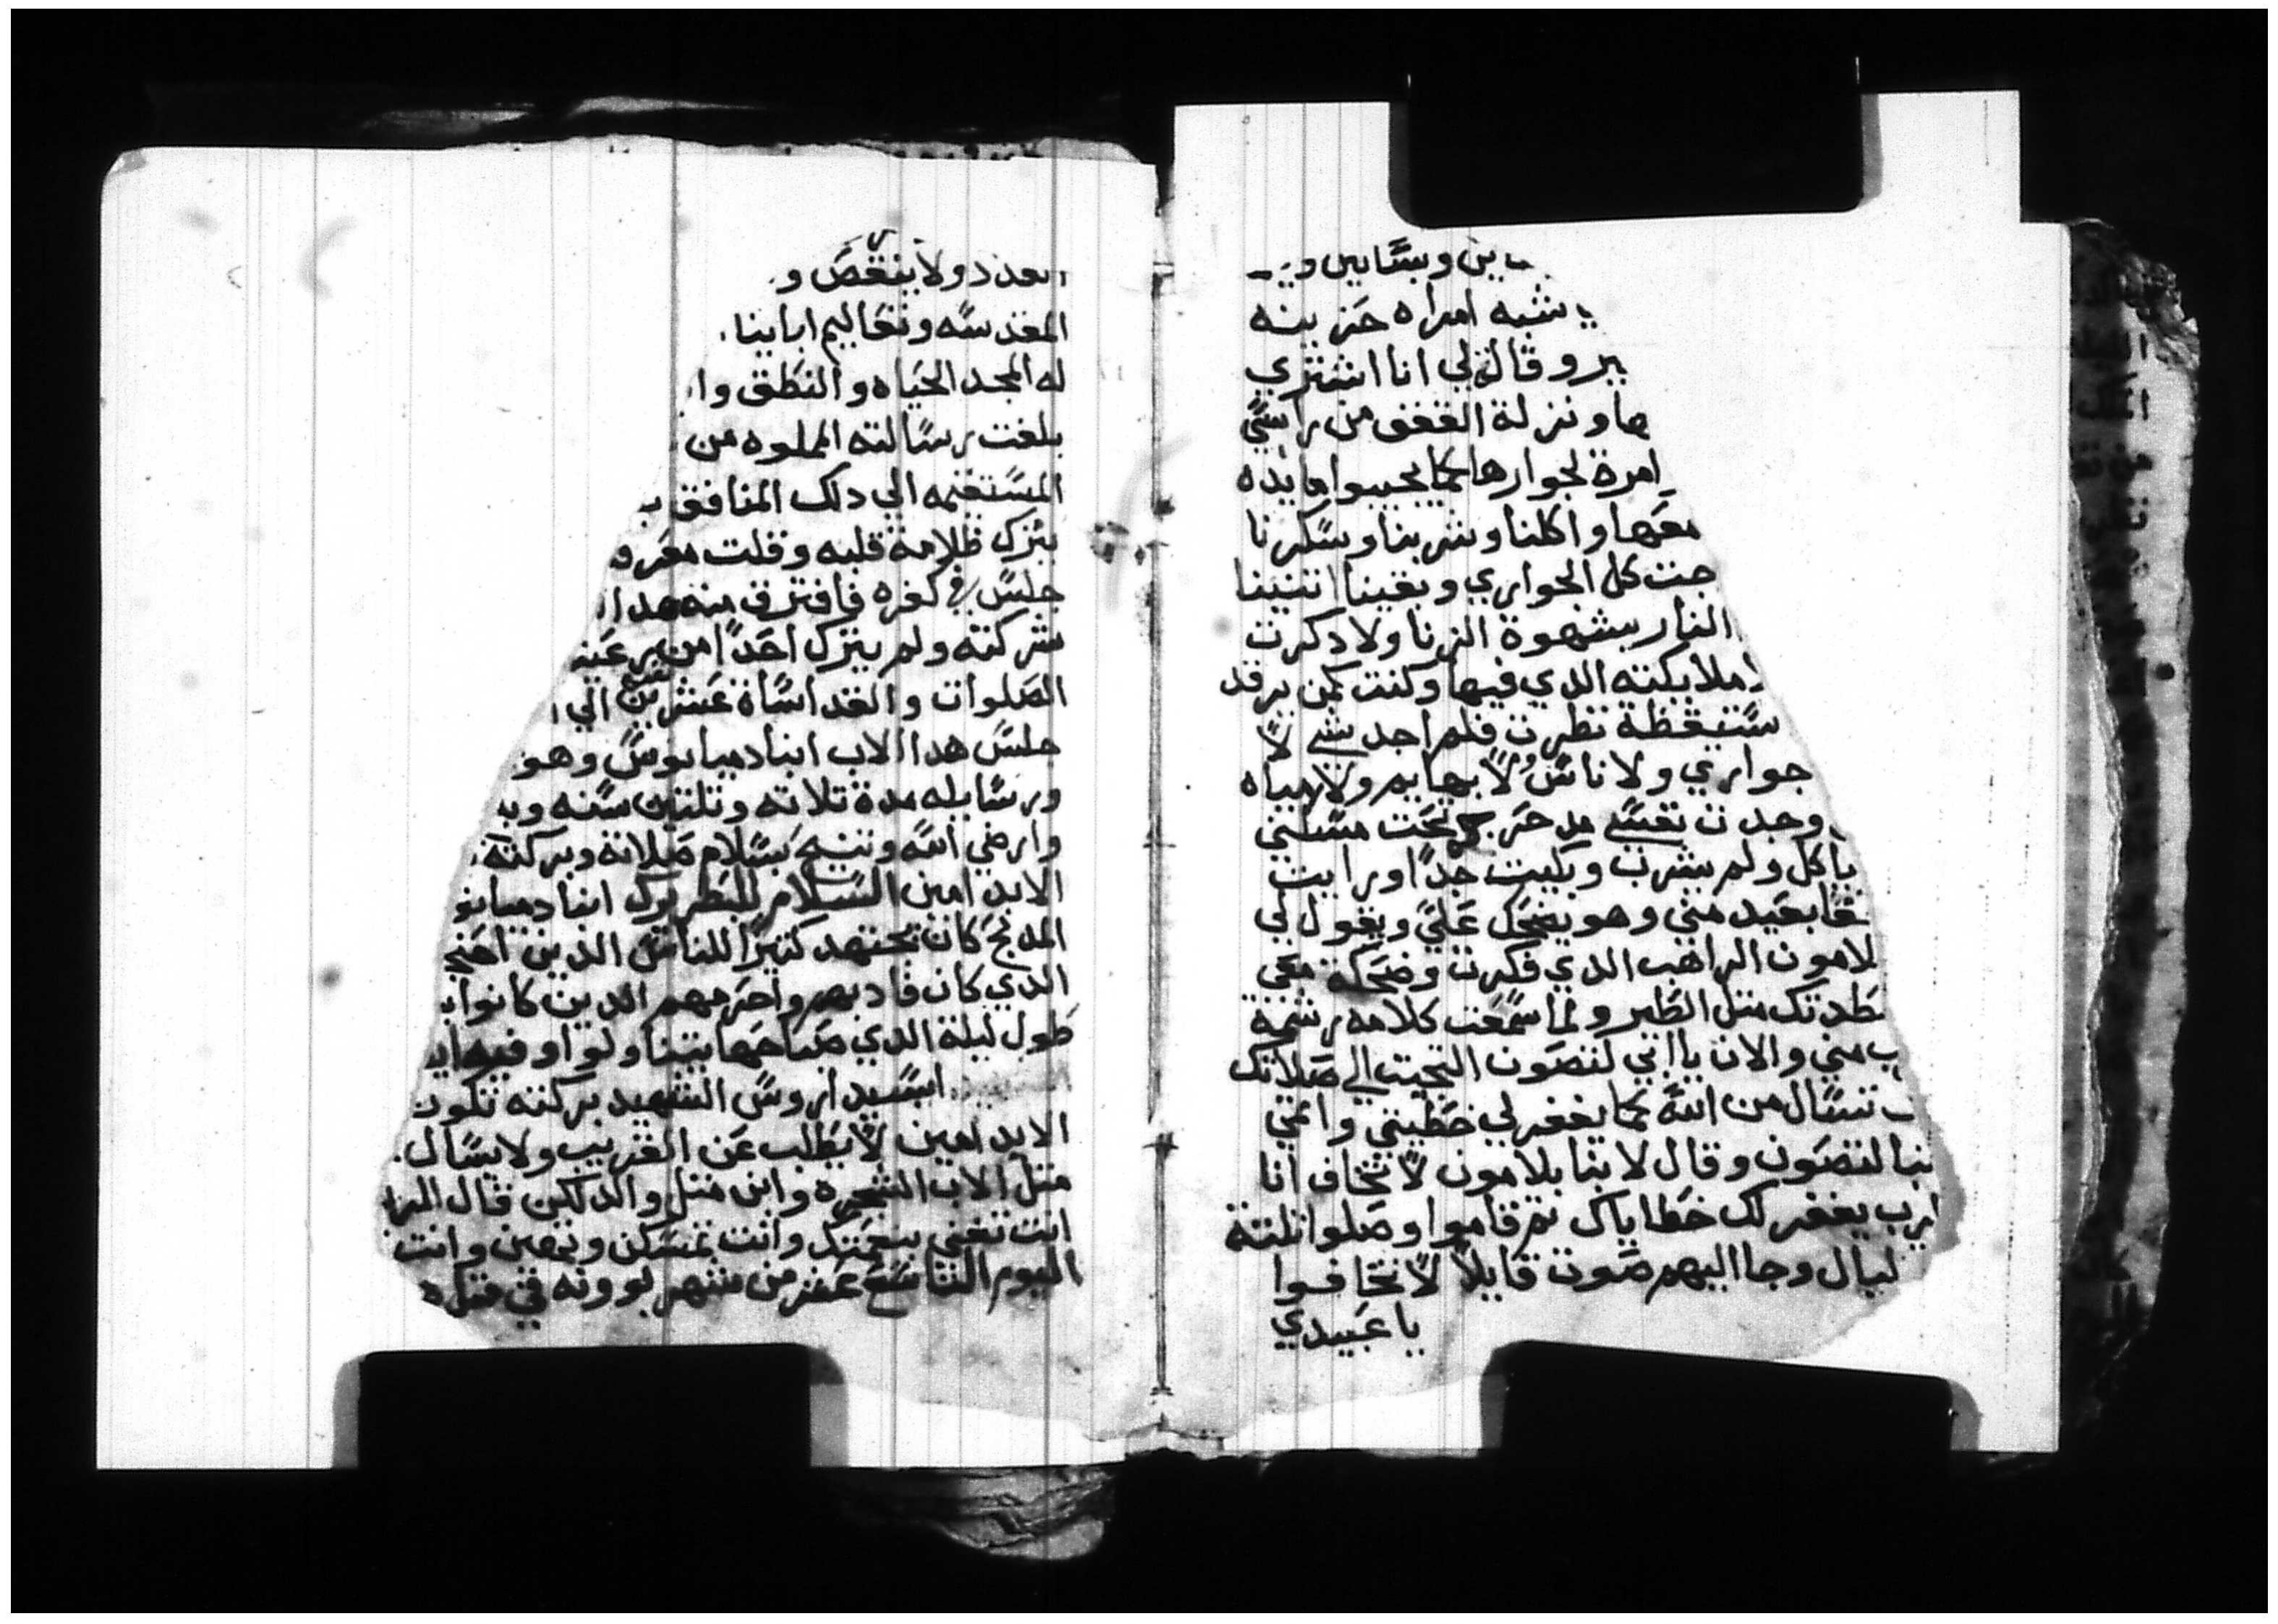 وبساتين
يشبه امراه حزينه
ير وقالة لي انا اشتري
ها ونزلة القفف من راسي
امرة لجوارها كما يجيبوا مايده
معها واكلنا وشربنا وسكرنا
جت كل الجواري وبقينا اتنينا
النار بشهوة الزنا ولا دكرت
ملايكته الدي فيها وكنت كمن يرقد
ستيقظة نظرت فلم اجد شي لا
جواري ولا ناس ولا بهايم ولا مياه
وجدت نفسي مدحرج تحت مسكني
ياكل ولم يشرب وبكيت جدا ورايت
بعيد مني وهو يضحك علي ويقول لي
لامون الراهب الدي فكرت وضحكة معي
طدتك متل الطير ولما سمعت كلامه رشمة
مني والان يا ابي لنصون التجيت الي صلاتك
تسال من الله كما يغفر لي خطيتي وابي
نبا لنصون وقال لابنا بلامون لا تخاف انا
الرب يغفر لك خطاياك تم قاموا وصلوا تلتة
ليال وجا اليهم صوت قايلا لا تخافوا
يا عبيدي
العدد ولا ينقص و
المقدسه وتعاليم ابابنا
له المجد الحياه والنطق وا
بلغت رسالته المملوه من
المستقيمه الي دلك المنافق
يترك ظلامة قلبه وقلت معرف
جلس في كفره فافترق منه هدا
شركته ولم يترك احدا من يرعيه
الصلوات والقداساة عشرين الي
جلس هدا الاب انبا دميانوس وهو
ورسايله مدة تلاته وتلتين سنه وب
وارضي الله وتنيح بسلام صلاته وبركته
الابد امين السلام للبطريرك انبا دميانو
المدبح كان يجتهد كتيرا للناس الدين
الدي كان قاد بهم واحرمهم الدين كانوا
طول ليلة الدي صباحها بتينا ولوا وفيه
اسيدا روس الشهيد بركته تكون
الابد امين لا يطلب عن الغريب ولا يسال
متل الاب الشجره وابن متل والد لكن قال
انت تغني بنعمتك وانت تمسكن وتهين وانت
اليوم التاسع عشر من شهر بوونه في متل